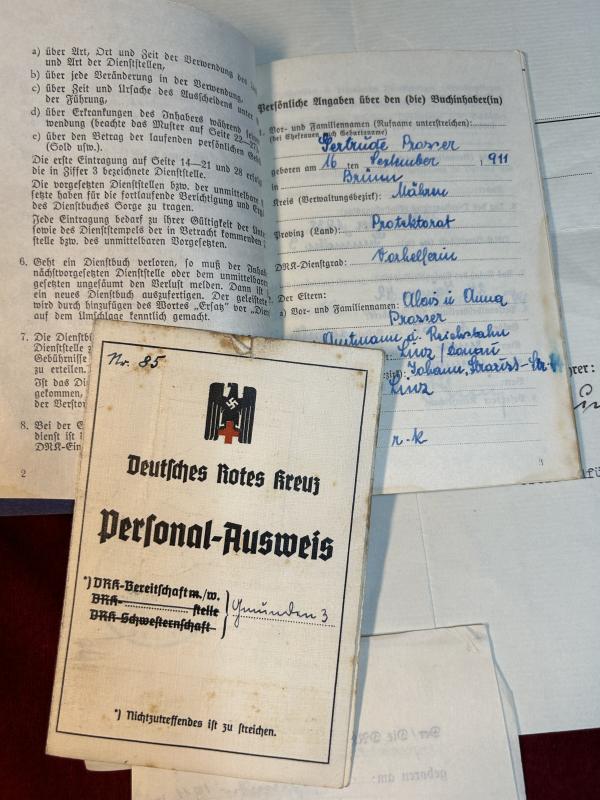 a) über Art, Ort und Zeit der Verwendung des
und Art der Dienststellen,
b) über jede Veränderung in der Verwendung,
c) über Zeit und Ursache des Ausscheidens unter
der Führung,
d) über Erkrankungen des Inhabers während
wendung (beachte das Muster auf Seite 22—27)
e) über den Betrag der laufenden persönlichen
(Sold usw.).
Die erste Eintragung auf Seite 14—21 und 28
die in Ziffer 3 bezeichnete Dienststelle.
Die vorgesetzten Dienststellen bzw. der unmittelbare
setzte haben für die fortlaufende Berichtigung und
des Dienstbuches Sorge zu tragen.
Jede Eintragung bedarf zu ihrer Gültigkeit der
sowie des Dienststempels der in Betracht kommenden
stelle bzw. des unmittelbaren Vorgesetzten.
6. Geht ein Dienstbuch verloren, so muß der
nächstvorgesetzten Dienststelle oder dem unmittelbaren
gesetzten ungesäumt den Verlust melden. Dann ist
ein neues Dienstbuch auszufertigen. Der
wird durch hinzufügen des Wortes „Ersatz" vor
auf dem Umschlage kenntlich gemacht.
7. Die
Dienststelle
Gebührnisse
zu erteilen.
Ist das
gekommen,
der
8. Bei der
dienst ist
2
Persönliche Angaben über den (die) Buchinhaber(in)
Vor- und Familiennamen (Rufname unterstreichen):
(bei Ehefrauen auch Geburtsname)
Gertrude Prosser
geboren am 16 ten September 1911
in Brünn
Kreis (Verwaltungsbezirk): Mähren
Provinz (Land): Protektorat
DRK-Dienstgrad: Vorhelferin
2. Der Eltern:
a) Vor- und Familiennamen: Alois u Anna
Prosser
Amtmann d. Reichsbahn
Linz / Donau
Johann, Strauss-Str.
Linz
r. k
3
Nr. 85
Deutsches Rotes Kreuz
Personal-Ausweis
*) DRK-Bereitschaft m./w.
DRK- stelle
DRK-Schwesternschaft
Gmünden 3
*) Nichtzutreffendes ist zu streichen.
rer:
Der/Die
geboren am: